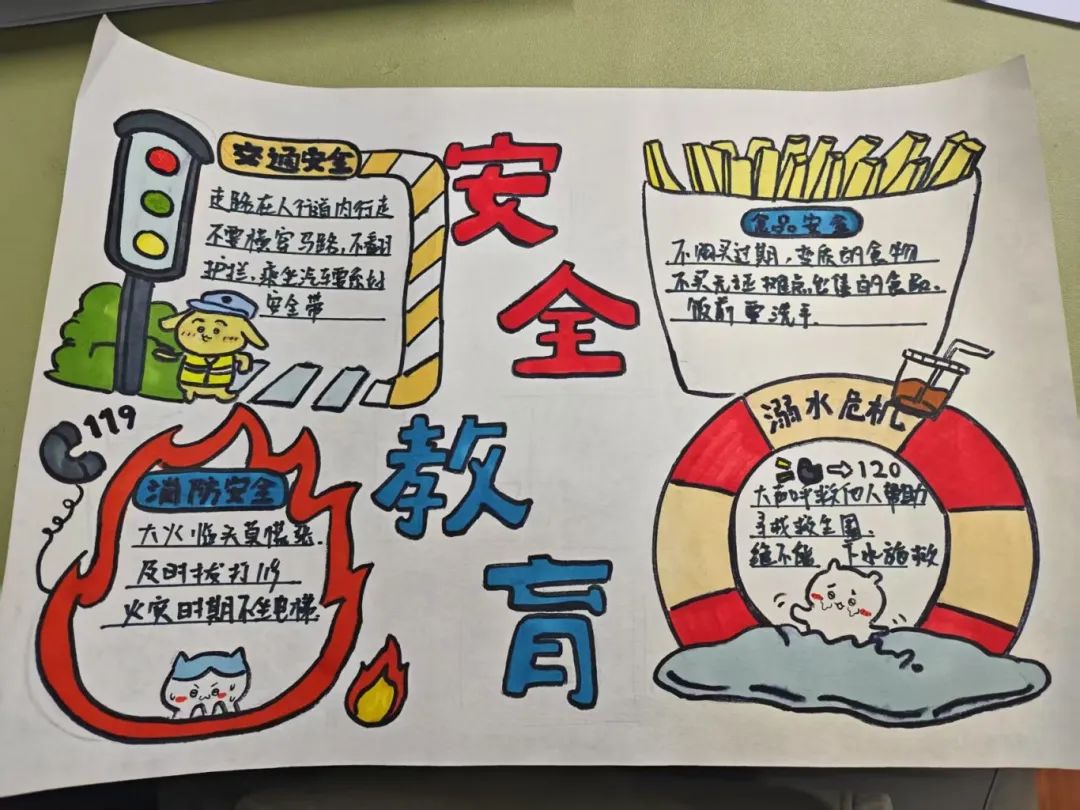 安全教育
交通安全
走路在人行道内行走
不要横穿马路,不翻
护拦,乘坐汽车要系好
安全带
食品安全
不购买过期,变质的食物
不买无证摊点出售的食品.
饭前要洗手.
119
消防安全
大火临天莫慌张.
及时拨打119
火灾时期不坐电梯.
溺水危机
120
大声呼救他人帮助
寻找救生圈.
绝不能 下水施救